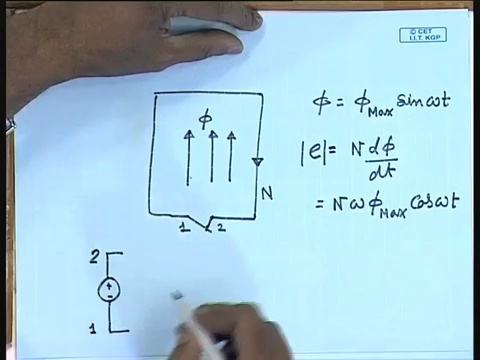 © CET
I.I.T. KGP
ϕ = ϕMax sinωt
ϕ
|e| = N dϕ/dt
N
= NωϕMax Cosωt
1 2
2
+
-
1